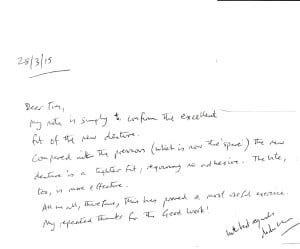 28/3/15
Dear Tim,
My note is simply to confirm the excellent
fit of the new denture.
Compared with the previous (which is now the 'spare') the new
denture is a tighter fit, requiring no adhesive. The bite,
too, is more effective.
All in all, therefore, this has proved a most useful exercise.
My repeated thanks for the Good Work!